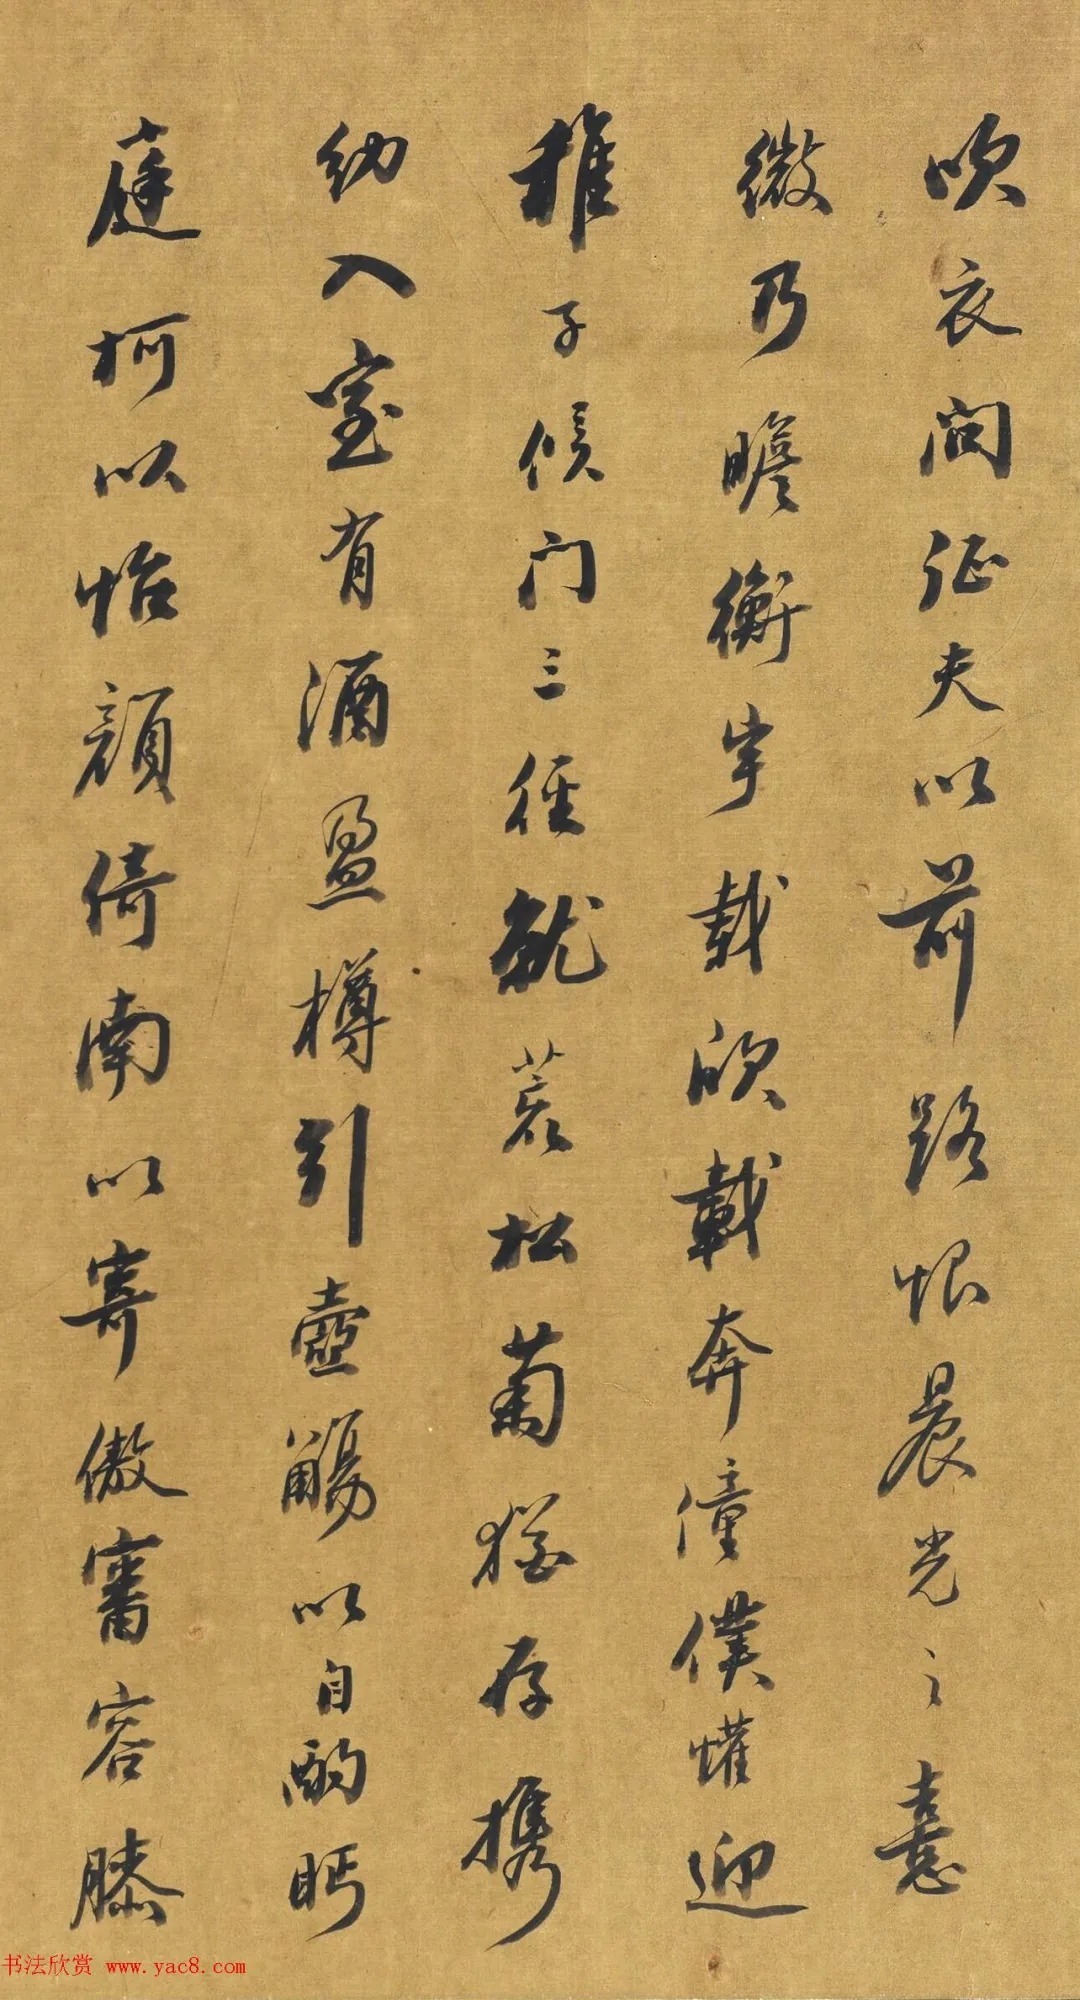 吹衣问征夫以前路恨晨光之熹
微乃瞻衡宇载欣载奔僮仆懽迎
稚子候门三径就荒松菊犹存携
幼入室有酒盈樽引壶觞以自酌眄
庭柯以怡颜倚南以寄傲审容膝
书法欣赏 www.yac8.com